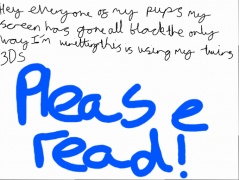 Hey everyone os my pups my
screen has gone all black the only
way I'm writting this is using my twins
3DS
Please
read!